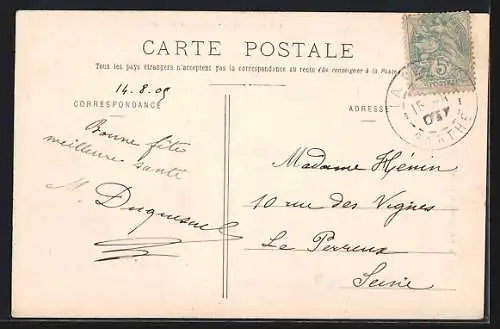 CARTE POSTALE
Tous les pays étrangers n'acceptent pas la correspondance au recto (Se renseigner à la Poste)
14.8.05
CORRESPONDANCE
ADRESSE
Bonne fête
meilleure santé
M. Duquesnel
Madame Hénin
10 rue des Vignes
Le Perreux
Seine
5
SARTHE